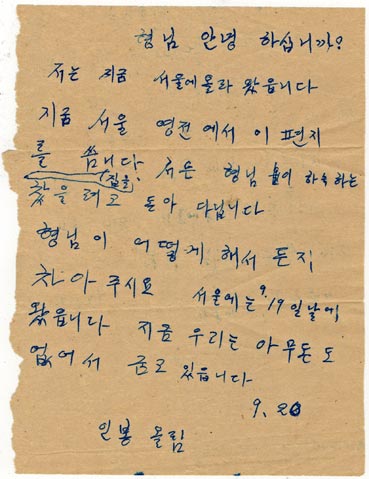 형님 안녕 하십니까?
저는 지금 서울에 올라 왔읍니다
지금 서울 영전에서 이 편지
를 씁니다 저는 형님 하숙 하는
집을
찾을려고 돌아 다닙니다
형님이 어떻게 해서 든지
찾아 주시요 서울에는 9/19일날에
왔읍니다 지금 우리는 아무돈도
없어서 굶고 있읍니다
9. 20
일봉 올림